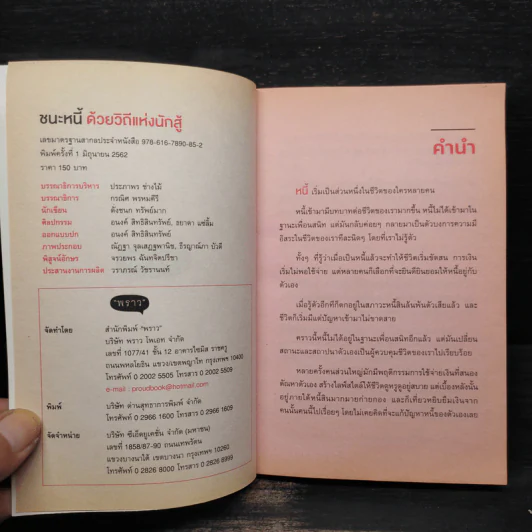 ชนะหนี้ ด้วยวิถีแห่งนักสู้
เลขมาตรฐานสากลประจำหนังสือ 978-616-7890-85-2
พิมพ์ครั้งที่ 1 มิถุนายน 2562
ราคา 150 บาท
บรรณาธิการบริหาร ประภาพร ช่างไม้
บรรณาธิการ กรณิศ พรหมศีรี
นักเขียน ตังชนก ทรัพย์มาก
ศิลปกรรม อนงค์ สิทธิสินทรัพย์, ธยาดา แซ่ลิ้ม
ออกแบบปก อนงค์ สิทธิสินทรัพย์
ภาพประกอบ ณัฏฐา จุลเสฏฐพานิช, ธีรญาณ์ภา บัวดี
พิสูจน์อักษร จรวยพร ฉันทจิตปรีชา
ประสานงานการผลิต วราภรณ์ วัชรานนท์
"พราว"
จัดทำโดย สำนักพิมพ์ "พราว"
บริษัท พราว โพเอท จำกัด
เลขที่ 1077/41 ชั้น 12 อาคารไซมิส ราชครู
ถนนพหลโยธิน แขวง/เขตพญาไท กรุงเทพฯ 10400
โทรศัพท์ 0 2002 5505 โทรสาร 0 2002 5509
e-mail : proudbook@hotmail.com
พิมพ์ บริษัท ด่านสุทธาการพิมพ์ จำกัด
โทรศัพท์ 0 2966 1600 โทรสาร 0 2966 1609
จัดจำหน่าย บริษัท ซีเอ็ดยูเคชั่น จำกัด (มหาชน)
เลขที่ 1858/87-90 ถนนเทพรัตน
แขวงบางนาใต้ เขตบางนา กรุงเทพฯ 10260
โทรศัพท์ 0 2826 8000 โทรสาร 0 2826 8999
คำนำ
หนี้ เริ่มเป็นส่วนหนึ่งในชีวิตของใครหลายคน
หนี้เข้ามามีบทบาทต่อชีวิตของเรามากขึ้น หนี้ไม่ได้เข้ามาใน
ฐานะเพื่อนสนิท แต่มันกลับค่อยๆ กลายมาเป็นตัวบงการความมี
อิสระในชีวิตของเราทีละนิดๆ โดยที่เราไม่รู้ตัว
ทั้งๆ ที่รู้ว่าเมื่อเป็นหนี้แล้วจะทำให้ชีวิตเริ่มขัดสน การเงิน
เริ่มไม่พอใช้จ่าย แต่หลายคนก็เลือกที่จะยืนดียินยอมให้หนี้อยู่กับ
ตัวเอง
เมื่อรู้ตัวอีกทีก็ตกอยู่ในสภาวะหนี้สินล้นพ้นตัวเสียแล้ว และ
ชีวิตก็เริ่มมีแต่ปัญหาเข้ามาไม่ขาดสาย
คราวนี้หนี้ไม่ได้อยู่ในฐานะเพื่อนสนิทอีกแล้ว แต่มันเปลี่ยน
สถานะและสถาปนาตัวเองเป็นผู้ควบคุมชีวิตของเราไปเรียบร้อย
หลายครั้งคนส่วนใหญ่มักมีพฤติกรรมการใช้จ่ายเงินที่สนอง
ตัณหาตัวเอง สร้างไลฟ์สไตล์ให้ชีวิตดูหรูดูอยู่สบาย แต่เบื้องหลังนั้น
อยู่ภายใต้หนี้สินมากมายก่ายกอง และก็เที่ยวหยิบยืมเงินจาก
คนนั้นคนนี้ไปเรื่อยๆ โดยไม่เคยคิดที่จะแก้ปัญหาหนี้ของตัวเองเลย